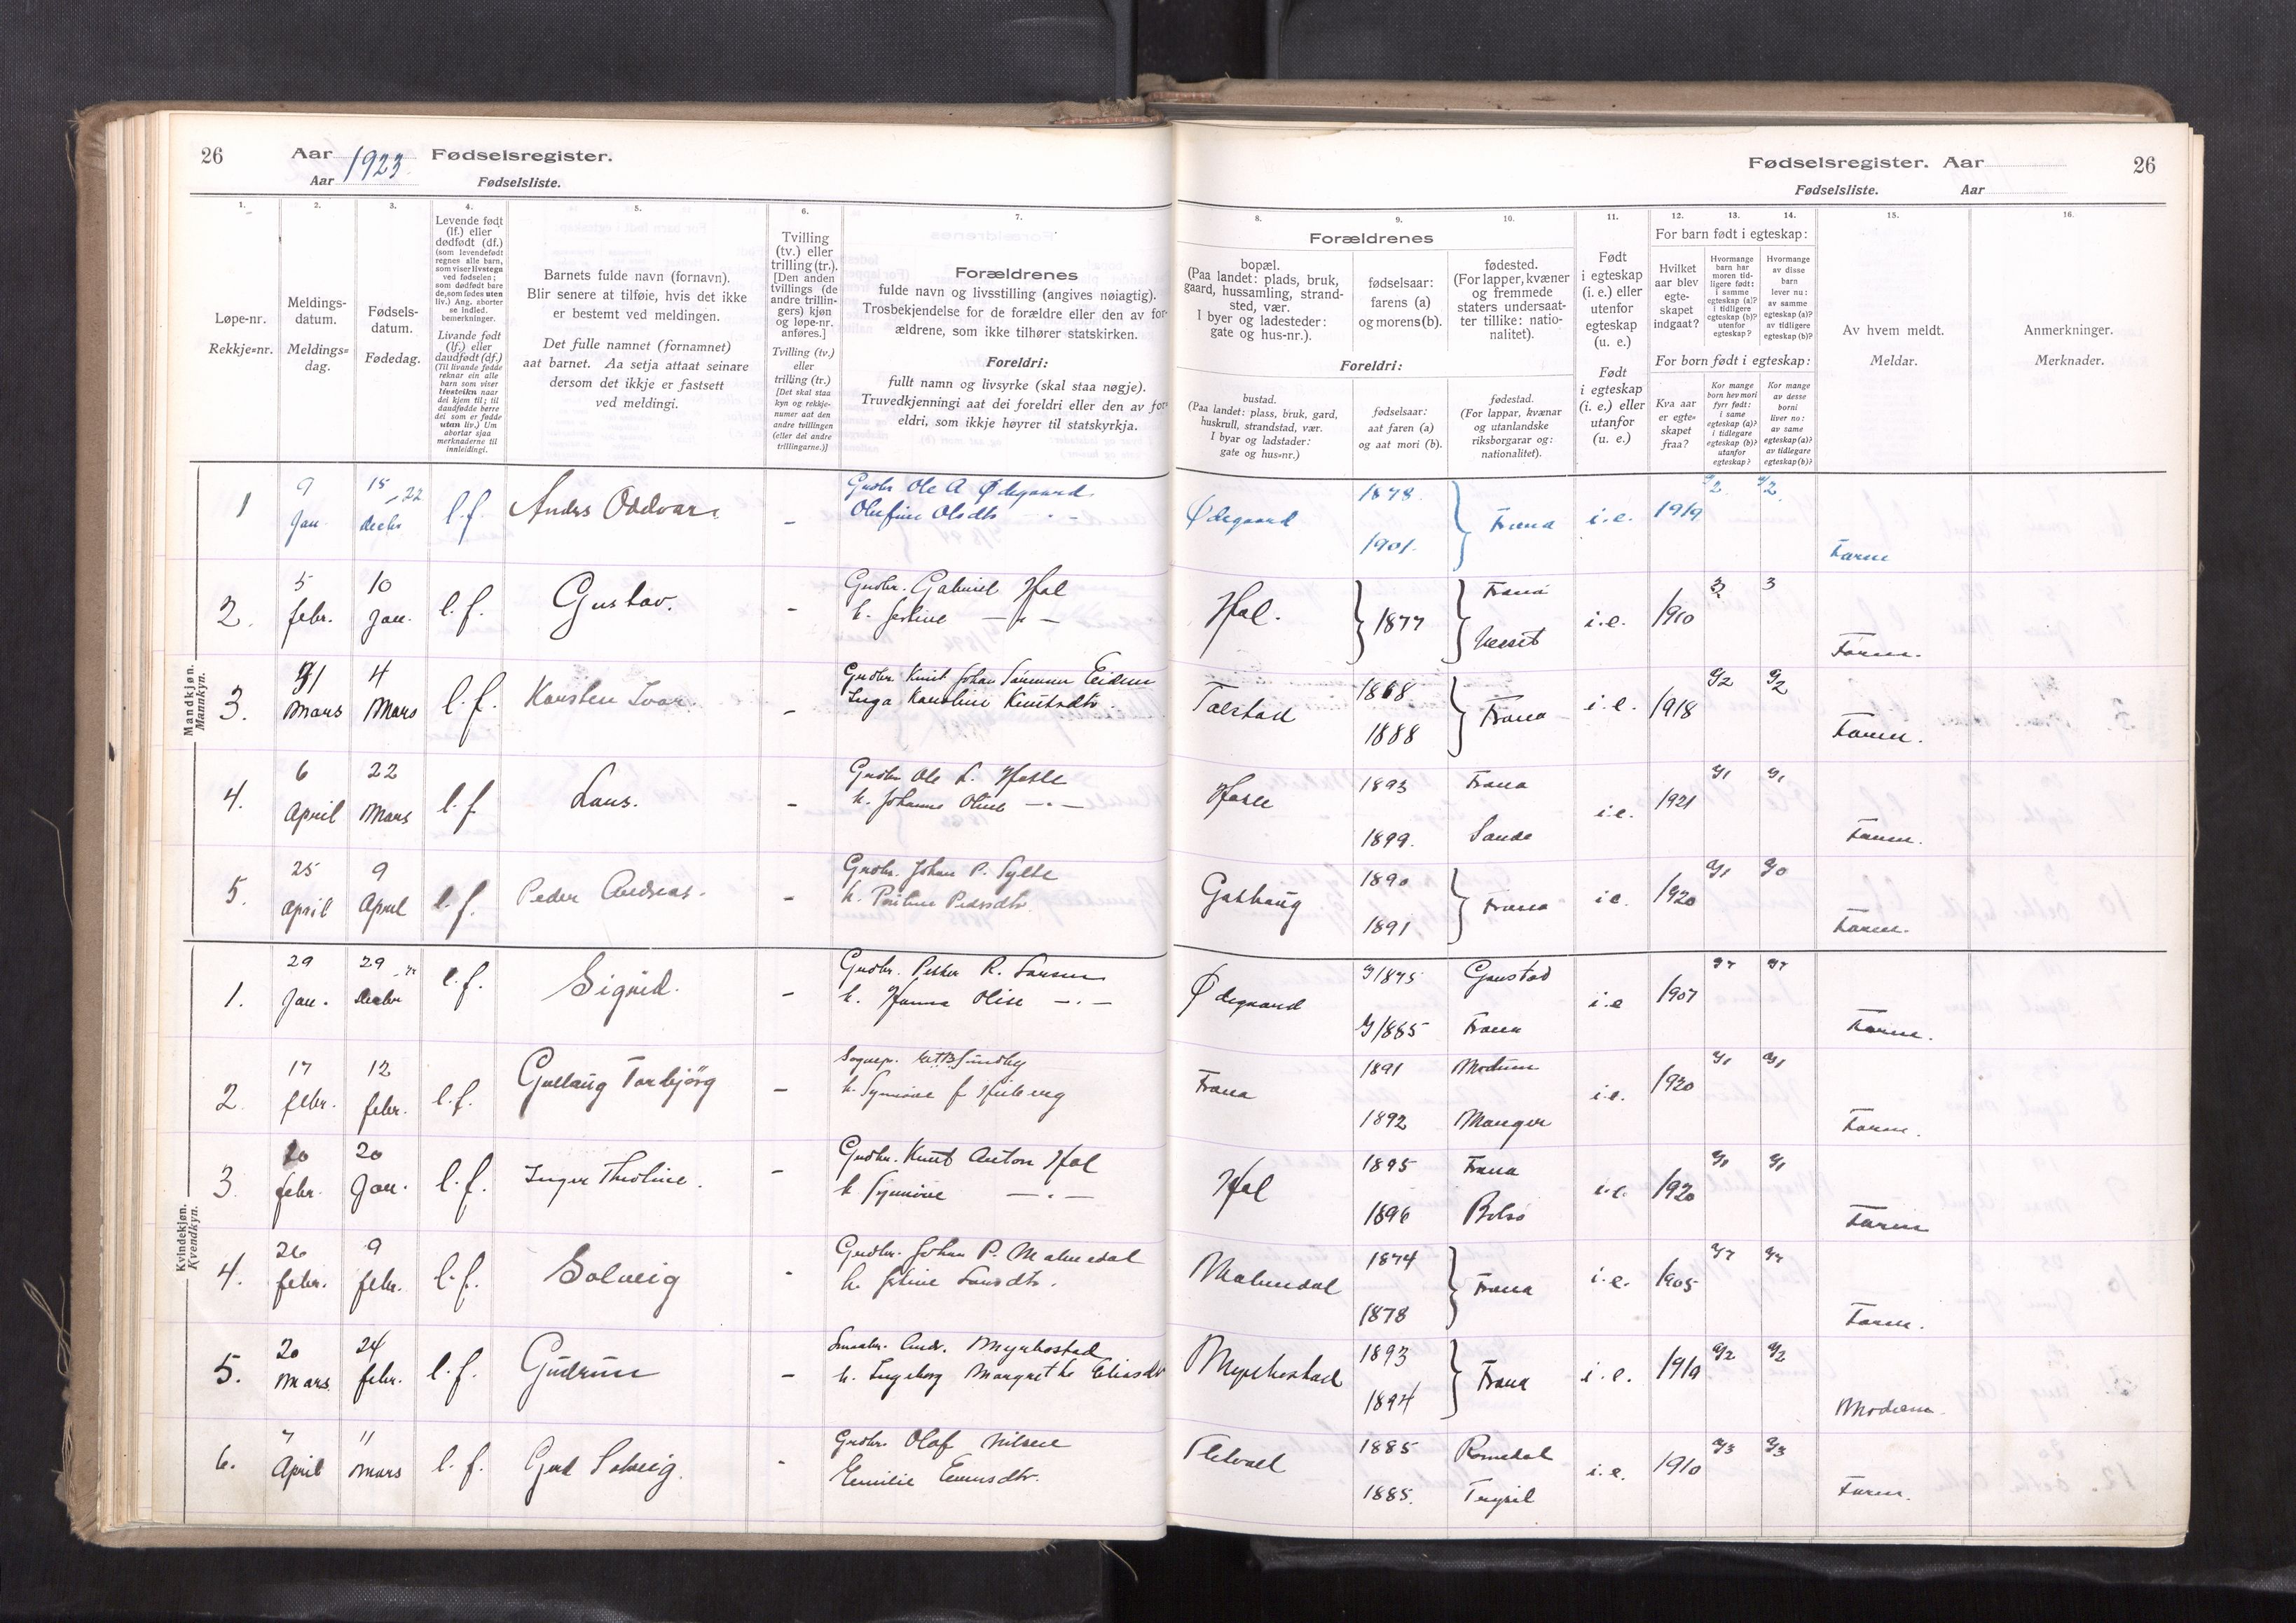 26
Aar 1923. Fødselsregister.
Aar Fødselsliste.
Fødselsregister. Aar
26
Fødselsliste. Aar
1.
2.
3.
4.
5.
6.
7.
8.
9.
10.
11.
12.
13.
14.
15.
16.
Løpe-nr.
Rekkje=nr.
Meldings-
datum.
Meldings=
dag.
Fødsels-
datum.
Fødedag.
Levende født
(lf.) eller
dødfødt (df.)
(som levendefødt
regnes alle barn,
som viser livstegn
ved fødselen;
som dødfødt bare
de, som fødes uten
liv.) Ang. aborter
se indled.
bemerkninger.
Livande født
(lf.) eller
daudfødt (df.)
(Til livande fødde
reknar ein alle
barn som viser
livsteikn naar
dei kjem til; til
daudfødde berre
dei som er fødde
utan liv.) Um
abortar sjaa
merknaderne til
innleidingi.
Barnets fulde navn (fornavn).
Blir senere at tilføie, hvis det ikke
er bestemt ved meldingen.
Det fulle namnet (fornamnet)
aat barnet. Aa setja attaat seinare
dersom det ikkje er fastsett
ved meldingi.
Tvilling
(tv.) eller
trilling (tr.).
[Den anden
tvillings (de
andre trillin-
gers) kjøn
og løpe-nr.
anføres.]
Tvilling (tv.)
eller
trilling (tr.)
[Det skal staa
kyn og rekkje-
numer aat den
andre tvillingen
(eller dei andre
trillingarne.)]
Forældrenes
fulde navn og livsstilling (angives nøiagtig).
Trosbekjendelse for de forældre eller den av for-
ældrene, som ikke tilhører statskirken.
Foreldri:
fullt namn og livsyrke (skal staa nøgje).
Truvedkjenningi aat dei foreldri eller den av for-
eldri, som ikkje høyrer til statskyrkja.
Forældrenes
bopæl.
(Paa landet: plads, bruk,
gaard, hussamling, strand-
sted, vær.
I byer og ladesteder:
gate og hus-nr.).
fødselsaar:
farens (a)
og morens (b).
fødested.
(For lapper, kvæner
og fremmede
staters undersaat-
ter tillike: natio-
nalitet).
Foreldri:
bustad.
(Paa landet: plass, bruk, gard,
huskrull, strandstad, vær.
I byar og ladstader:
gate og hus=nr.)
fødselsaar:
aat faren (a)
og aat mori (b).
fødestad.
(For lappar, kvænar
og utanlandske
riksborgarar og:
nationalitet).
Født
i egteskap
(i. e.) eller
utenfor
egteskap
(u. e.)
Født
i egteskap
(i. e.) eller
utanfor
(u. e.)
For barn født i egteskap:
Hvilket
aar blev
egte-
skapet
indgaat?
Hvormange
barn har
moren tid-
ligere født:
i samme
egteskap (a)?
i tidligere
egteskap (b)?
utenfor
egteskap?
Hvormange
av disse
barn
lever nu:
av samme
egteskap (a)?
av tidligere
egteskap (b)?
For born født i egteskap:
Kva aar
er egte=
skapet
fraa?
Kor mange
born hev mori
fyrr født:
i same
egteskap (a)?
i tidlegare
egteskap (b)?
utanfor
egteskap?
Kor mange
av desse
borni
liver no:
av same
egteskap (a)?
av tidlegare
egteskap (b)?
Av hvem meldt.
Meldar.
Anmerkninger.
Merknader.
Mandkjøn.
Mannkyn.
1 9 Jan. 15 - 22 Decbr l.f. Anders Oddvar. - Gudbr Ole A Ødegaard
Olufine Olsdtr
Ødegaard 1878. 1901. Frœna i.e. 1919 2 2 Faren
2. 5 febr. 10 Jan. l.f. Gustav. - Gudbr. Gabriel Hol
h. Jertine
Hol. 1877 Frœna Vesset i.e. 1910 3 3 Faren.
3. 21 Mars 4 Mars l.f. Karsten Ivar. - Gudbr. Knut Johan
Inga Karoline Knutsdtr.
Talstad 1868 1888 Frœna i.e. 1918 2 2 Faren.
4. 6 April 22 Mars l.f. Laus. - Gudbr Ole L. Hasle
h. Johanne Oline
Hasle 1893 1899. Frœna Sande i.e. 1921 1 1 Faren.
5. 25 April 9 April l.f. Peder Andreas. - Gudbr. Johan P. Sylte
h. Pedersdtr.
Gashaug 1890 1891 Frœna i.e. 1920 1 0 Faren.
Kvindekjøn.
Kvendkyn.
1. 29 Jan. 29 Decbr l.f. Sigrid. - Gudbr. Peder R. Larsen
h. Hanna Olise
Ødegaard 1875 1885 Gaustad Frœna i.e 1907 7 7 Faren.
2. 17 febr. 12 febr. l.f. Gullaug Torbjörg - Sognepr. Sundby
h. Synnöve f
Frœna 1891 1892 Modum Manger i.e. 1920 1 1 Faren.
3. 20 febr. 20 Jan. l.f. Inger Theoline. - Gudbr. Knut Anton Hol
h. Synnöve
Hol 1895 1896 Frœna Bolsø i.e. 1920 1 1 Faren
4. 26 febr. 9 febr. l.f. Solveig - Gudbr. Johan P. Malmedal
h. Larsdtr.
Malmedal 1874 1878 Frœna i.e. 1905 7 7 Faren.
5. 20 Mars 24 febr. l.f. Gudrun - Smaabr. Andr. Myrbostad
h. Ingeborg Margrethe Eliasdtr
Myrbostad 1893 1894 Frœna i.e. 1919 2 2 Moderen.
6. 7 April 11 Mars l.f. Gud Solveig. - Gudbr. Olaf Nilsen
Emilie
1885 1885. Romedal Trysil i.e. 1910 3 3 Faren.